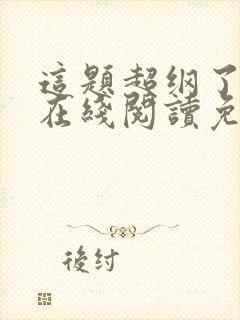 這題超纲了
在綫閱讀免
後紂